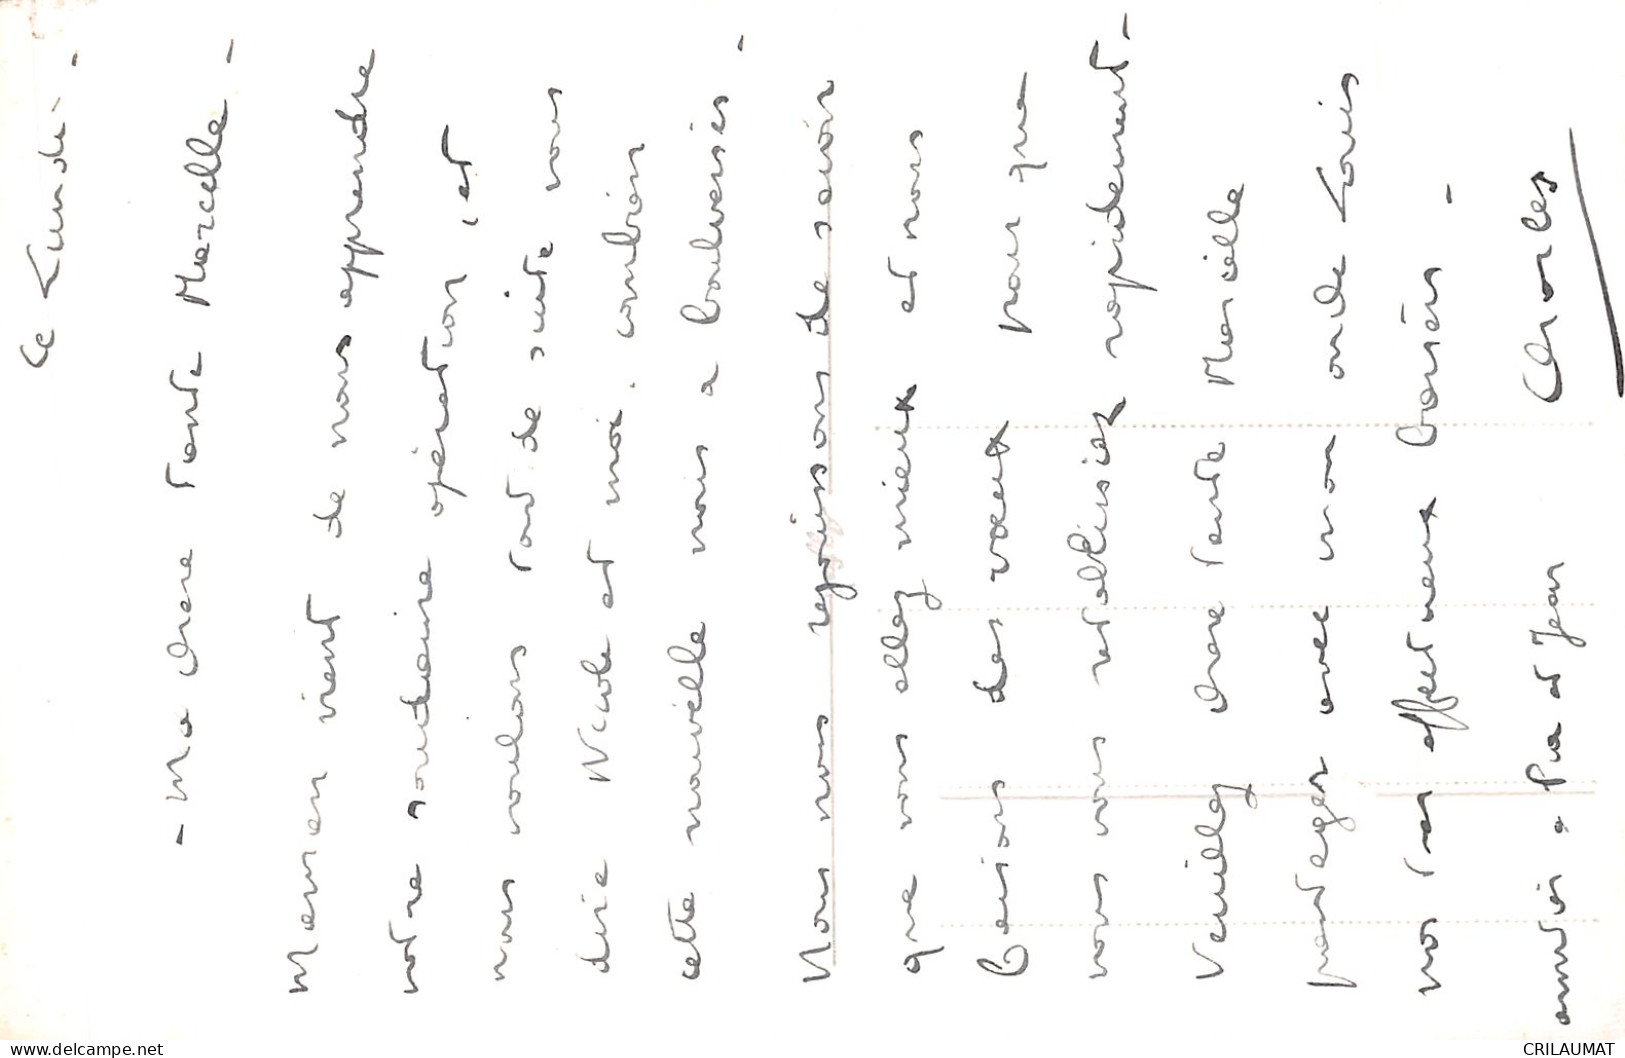 Ce Lundi -
- Ma chère Tante Marcelle -
Maman vient de nous apprendre
votre soudaine opération, et
nous voulons tout de suite vous
dire Nicole et moi, combien
cette nouvelle nous a boulversés -
Nous nous réjouissons de savoir
que vous allez mieux et nous
faisons des vœux pour que
vous vous rétablissiez rapidement -
Veuillez chère Tante Marcelle
partager avec mon oncle Louis
nos très affectueux baisers -
amitiés à Pia et Jean Charles
www.delcampe.net
CRILAUMAT